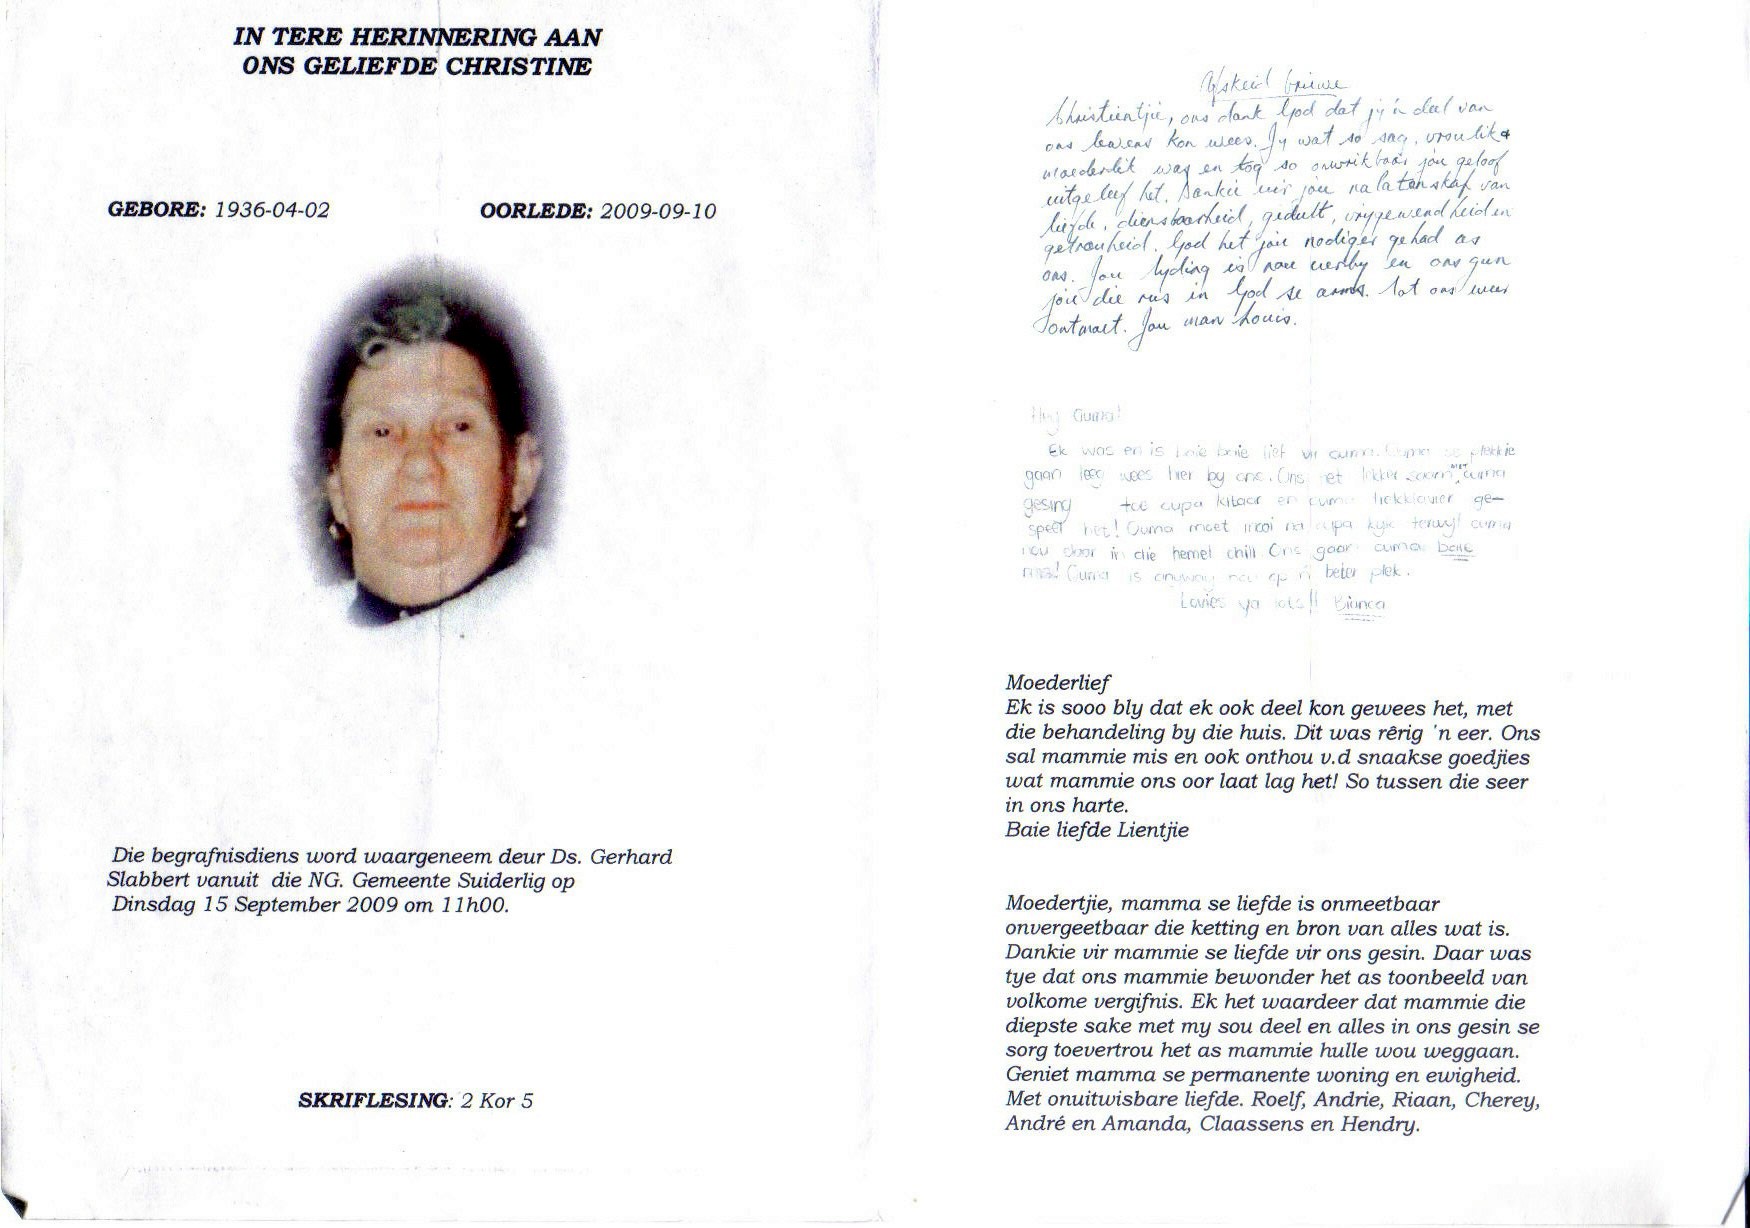 IN TERE HERINNERING AAN
ONS GELIEFDE CHRISTINE
GEBORE: 1936-04-02 OORLEDE: 2009-09-10
Die begrafnisdiens word waargeneem deur Ds. Gerhard
Slabbert vanuit die NG. Gemeente Suiderlig op
Dinsdag 15 September 2009 om 11h00.
SKRIFLESING: 2 Kor 5
Afskeid briewe
Christientjie, ons dank God dat jy 'n deel van
ons lewens kon wees. Jy wat so sag, vroulik &
moederlik was en tog so onwrikbaar jou geloof
uitgeleef het. Dankie vir jou nalatenskap van
liefde, diensbaarheid, geduld, vrygewendheid en
getrouheid. God het jou nodiger gehad as
ons. Jou lyding is nou verby en ons gun
jou die rus in God se arms. Tot ons weer
ontmoet. Jou man Louis.
Hey Ouma!
Ek was en is baie baie lief vir ouma. Ouma se plekkie
gaan leeg wees hier by ons. Ons het lekker saam met ouma
gesing toe oupa kitaar en ouma trekklavier ge-
speel het! Ouma moet mooi na oupa kyk terwyl ouma
nou daar in die hemel chill. Ons gaan ouma baie
mis! Ouma is anyway nou op 'n beter plek.
Lovies ya lots!! Bianca
Moederlief
Ek is sooo bly dat ek ook deel kon gewees het, met
die behandeling by die huis. Dit was rêrig 'n eer. Ons
sal mammie mis en ook onthou v.d snaakse goedjies
wat mammie ons oor laat lag het! So tussen die seer
in ons harte.
Baie liefde Lientjie
Moedertjie, mamma se liefde is onmeetbaar
onvergeetbaar die ketting en bron van alles wat is.
Dankie vir mammie se liefde vir ons gesin. Daar was
tye dat ons mammie bewonder het as toonbeeld van
volkome vergifnis. Ek het waardeer dat mammie die
diepste sake met my sou deel en alles in ons gesin se
sorg toevertrou het as mammie hulle wou weggaan.
Geniet mamma se permanente woning en ewigheid.
Met onuitwisbare liefde. Roelf, Andrie, Riaan, Cherey,
André en Amanda, Claassens en Hendry.